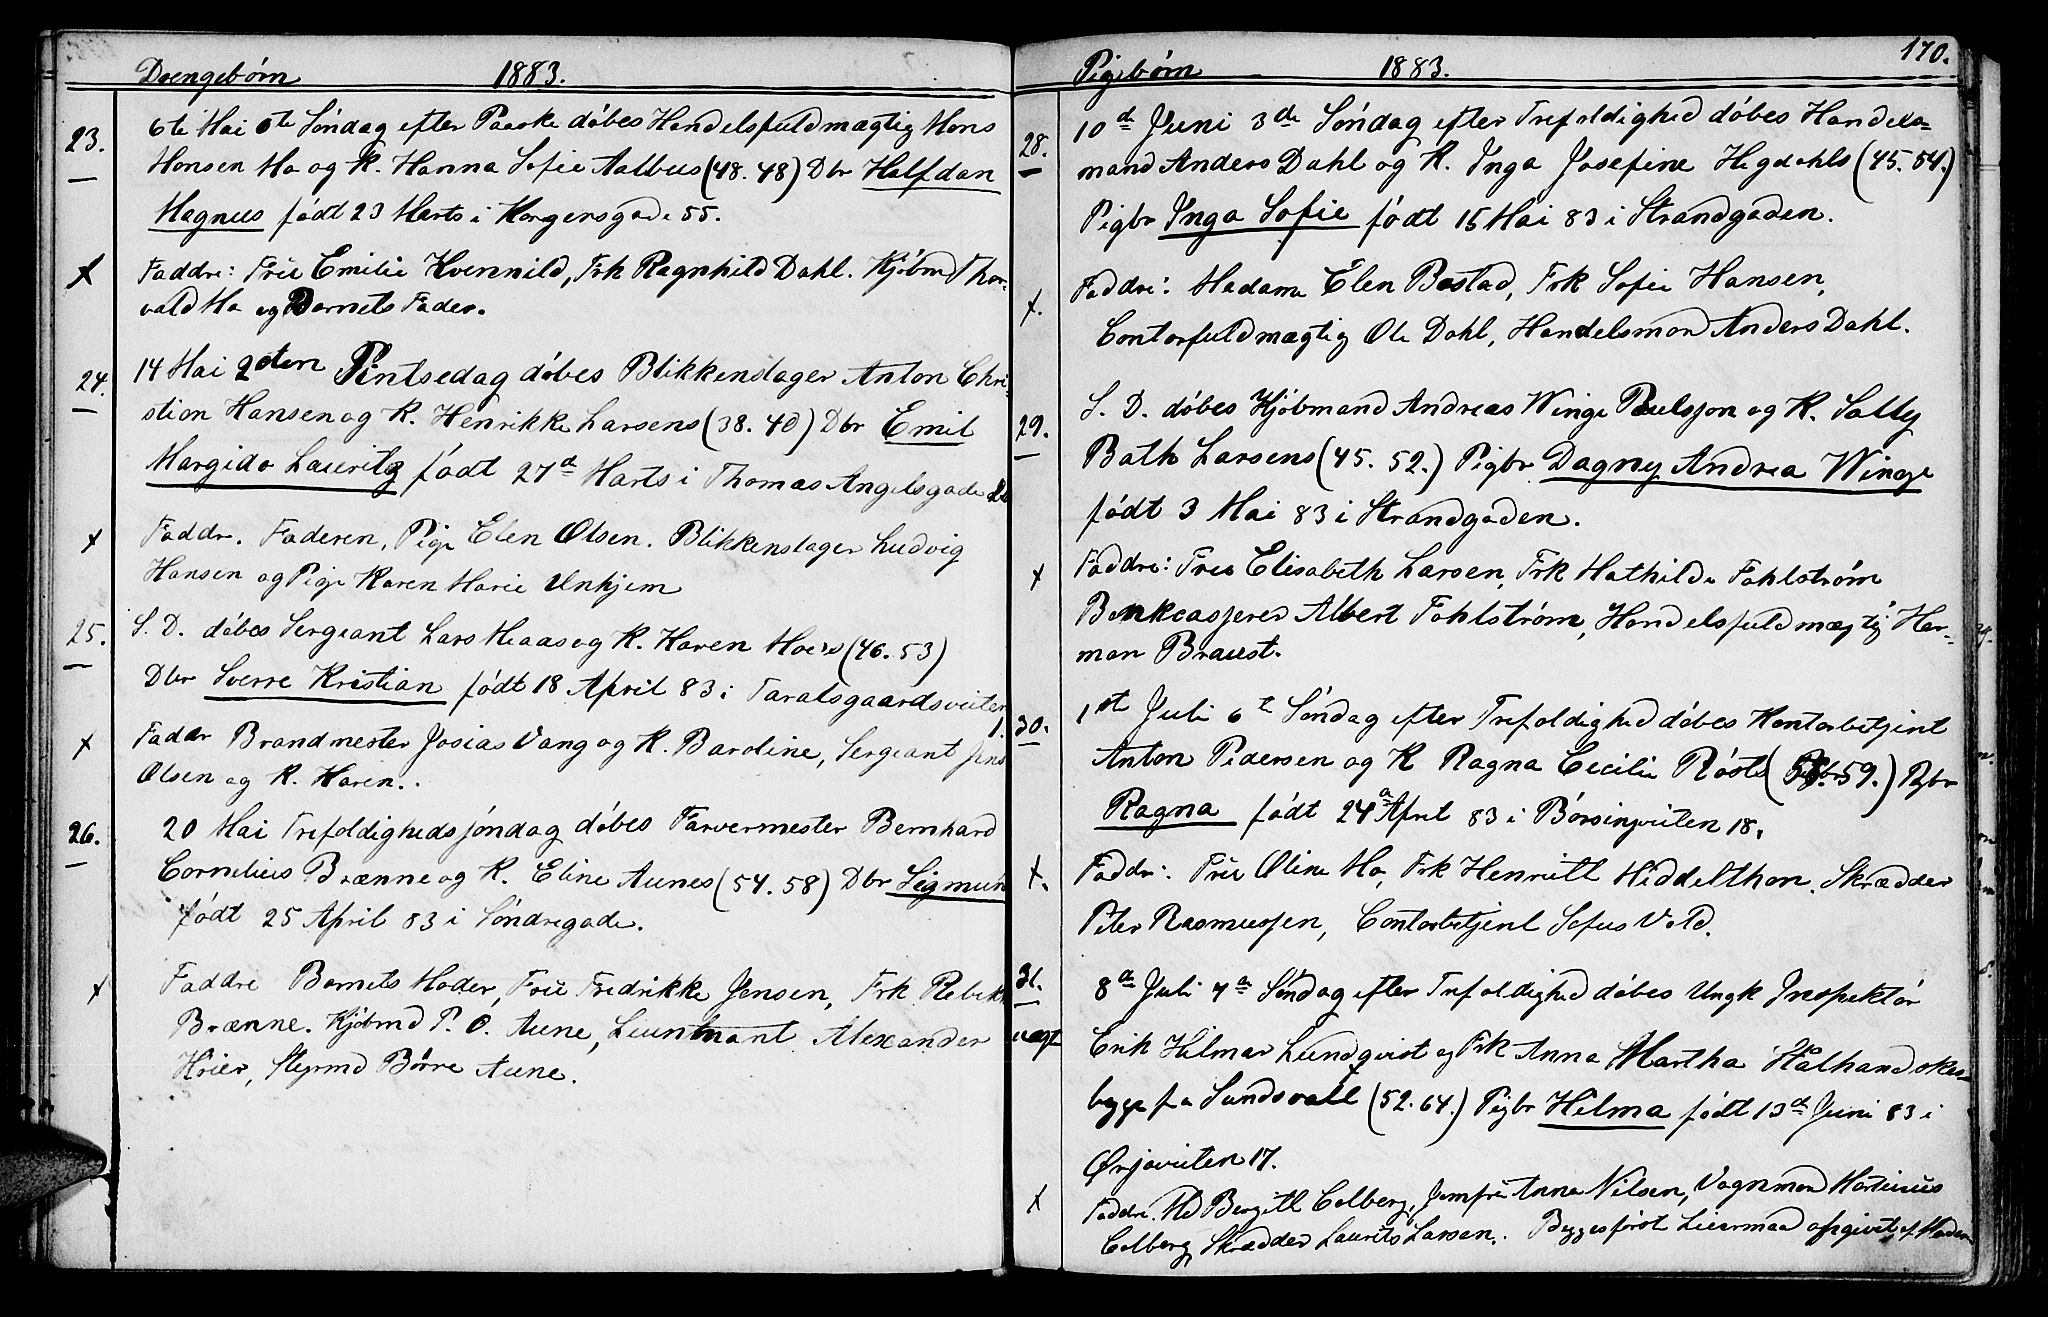 Drengebørn 1883.
23. 6te Mai 6te Søndag efter Paaske døbes Handelsfuldmægtig Mons
Monsen Mo og K. Hanna Sofie Aalbus (48. 48) Dbr Halfdan
Magnus født 23 Marts i Kongensgade 55.
x Faddre: Frue Emilie Kvennild, Frk Ragnhild Dahl. Kjøbmd Thor-
vald Mo og Barnets Fader.
24. 14 Mai 2den Pintsedag døbes Blikkenslager Anton Chri-
stian Hansen og K. Henrikke Larsens (38. 40) Dbr Emil
Margido Lauritz født 27d Marts i Thomas Angelsgade
x Faddr. Faderen, Pige Elen Olsen. Blikkenslager Ludvig
Hansen og Pige Karen Marie Unkjem
25. S. D. døbes Sergeant Lars Haas og K. Karen Moe's (46. 53)
Dbr Sverre Kristian født 18 April 83 i Taralsgaardsveiten
1.
x Faddr Brandmester Josias Vang og K. Baroline, Sergeant Jens
Olsen og K. Karen.
26. 20 Mai Trefoldighedssøndag døbes Farvermester Bernhard
Cornelius Brænne og K. Eline Aunes (54. 58) Dbr Sigmun
født 25 April 83 i Søndregade.
x Faddre Barnets Moder, Frue Fredrikke Jensen, Frk Rebek
Brænne. Kjøbmd P. O. Aune, Lieuntnant Alexander
Krier, Styrmd Børre Aune.
Pigebørn 1883. 170.
28. 10d Juni 3de Søndag efter Trefoldighed døbes Handels-
mand Anders Dahl og K. Inga Josefine Hegdahls (45. 54.)
Pigbr Inga Sofie født 15 Mai 83 i Strandgaden.
x. Faddre: Madame Elen Bostad, Frk Sofie Hansen,
Contorfuldmægtig Ole Dahl, Handelsmand Anders Dahl.
29. S. D. døbes Kjøbmand Andreas Winge Paulsson og K. Sally
Bath Larsens (45. 52.) Pigbr Dagny Andrea Winge
født 3 Mai 83 i Strandgaden.
x Faddre: Frue Elisabeth Larsen, Frk Mathilde Fahlstrøm
Bankcasserer Albert Fahlstrøm, Handelsfuldmægtig Her-
man Braust.
30. 1st Juli 6te Søndag efter Trefoldighed døbes Kontorbetjent
Anton Pedersen og K Ragna Cecilie Røsts ( 59.) Pgbr
Ragna født 24d April 83 i Børsinsveiten 18.
x. Faddr: Frue Oline Mo, Frk Henriette Middelthon, Skrædder
Peter Rasmussen, Contorbetjent Sofus Vold.
31. 8d Juli 7d Søndag efter Trefoldighed døbes Ungk Inspektør
uægt Erik Hilmar Lundqvist og Frk Anna Martha Stålhandske-
bygge fra Sundsvall (52. 64.) Pigbr Hilma født 13d Juni 83 i
Ørjaveiten 17.
x Faddre. Md Bergitte Colberg, Jomfru Anna Nilsen, Vognmand Martinus
Colberg, Skrædder Laurits Larsen. Begges først Leiermaal opgivet af Moderen